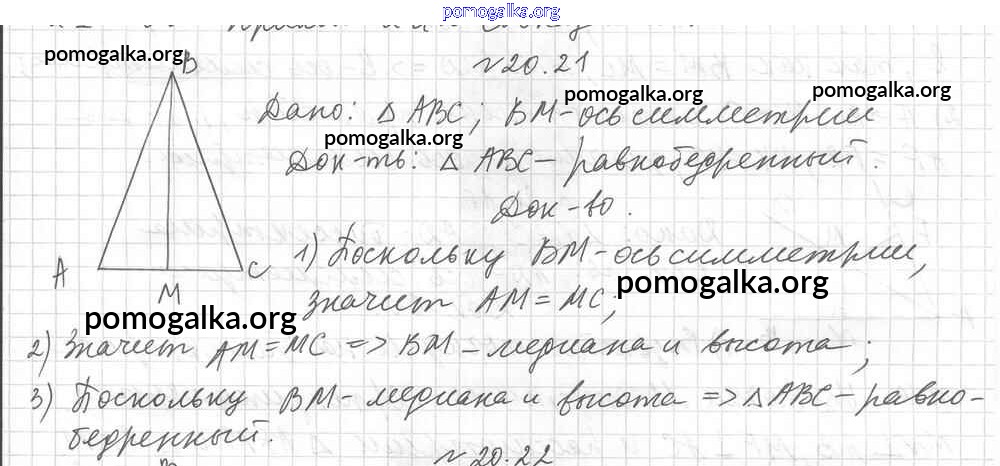 pomogalka.org
№20.21
pomogalka.org
B
Дано: △ ABC; BM-ось симметрии
pomogalka.org
pomogalka.org
pomogalka.org
Док-ть: △ ABC - равнобедренный.
Док-во.
1) Поскольку BM-ось симметрии,
A
C
M
значит AM = MC;
pomogalka.org
pomogalka.org
2) Значит AM = MC => BM - медиана и высота;
3) Поскольку BM - медиана и высота => △ ABC - равно-
бедренный.
№20.22
B